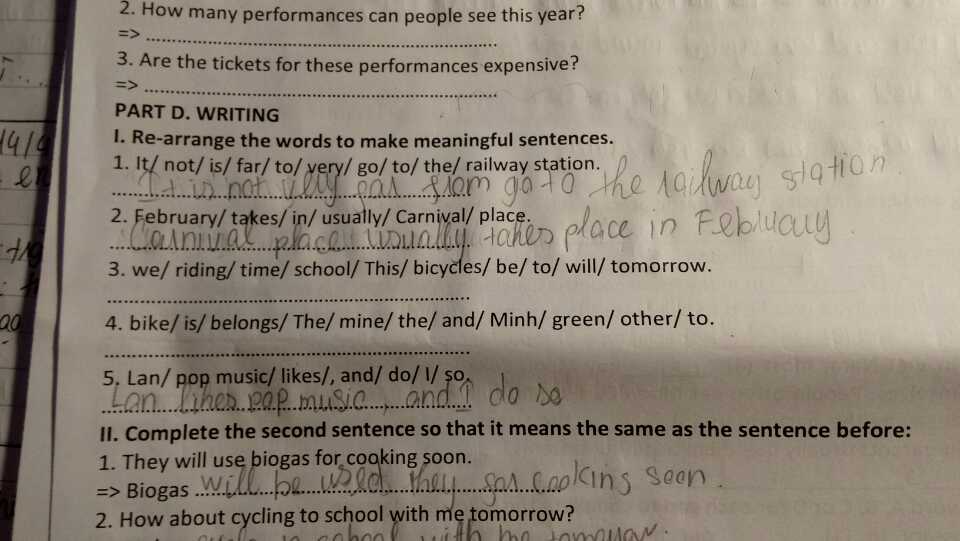 2. How many performances can people see this year?
=> ......................................................................
3. Are the tickets for these performances expensive?
=> ......................................................................
PART D. WRITING
I. Re-arrange the words to make meaningful sentences.
1. It/ not/ is/ far/ to/ very/ go/ to/ the/ railway station.
It is not very far from go to the railway station.
2. February/ takes/ in/ usually/ Carnival/ place.
Carnival place usually takes place in February.
3. we/ riding/ time/ school/ This/ bicycles/ be/ to/ will/ tomorrow.
......................................................................
4. bike/ is/ belongs/ The/ mine/ the/ and/ Minh/ green/ other/ to.
......................................................................
5. Lan/ pop music/ likes/, and/ do/ I/ so.
Lan likes pop music, and I do so
II. Complete the second sentence so that it means the same as the sentence before:
1. They will use biogas for cooking soon.
=> Biogas will be used they cooking soon.
2. How about cycling to school with me tomorrow?
school with